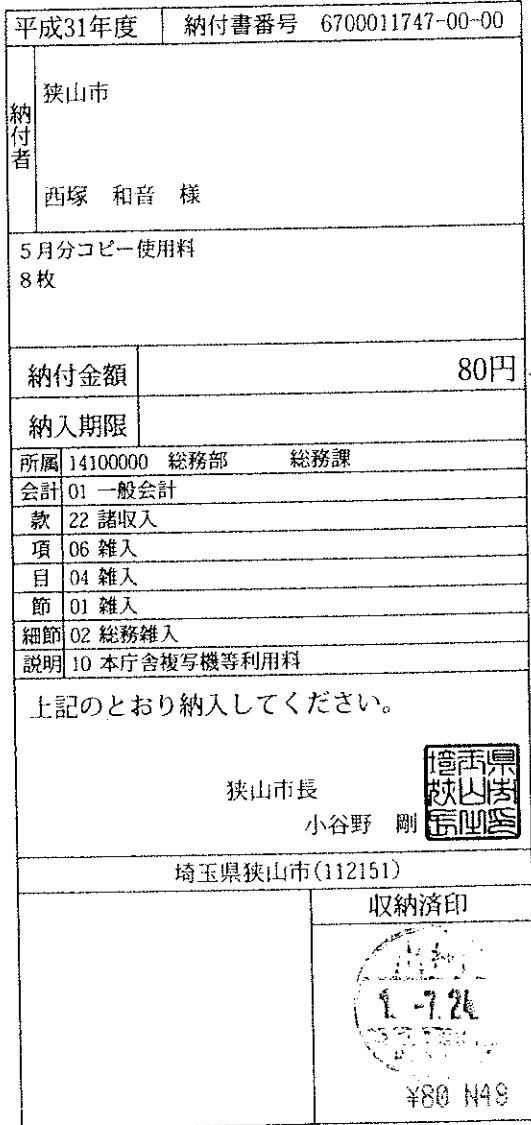 平成31年度 納付書番号 6700011747-00-00
納付者
狭山市
西塚 和音 様
5月分コピー使用料
8枚
納付金額 80円
納入期限
所属 14100000 総務部 総務課
会計 01 一般会計
款 22 諸収入
項 06 雑入
目 04 雑入
節 01 雑入
細節 02 総務雑入
説明 10 本庁舎複写機等利用料
上記のとおり納入してください。
狭山市長
小谷野 剛
埼玉県狭山市(112151)
収納済印
¥80 N49